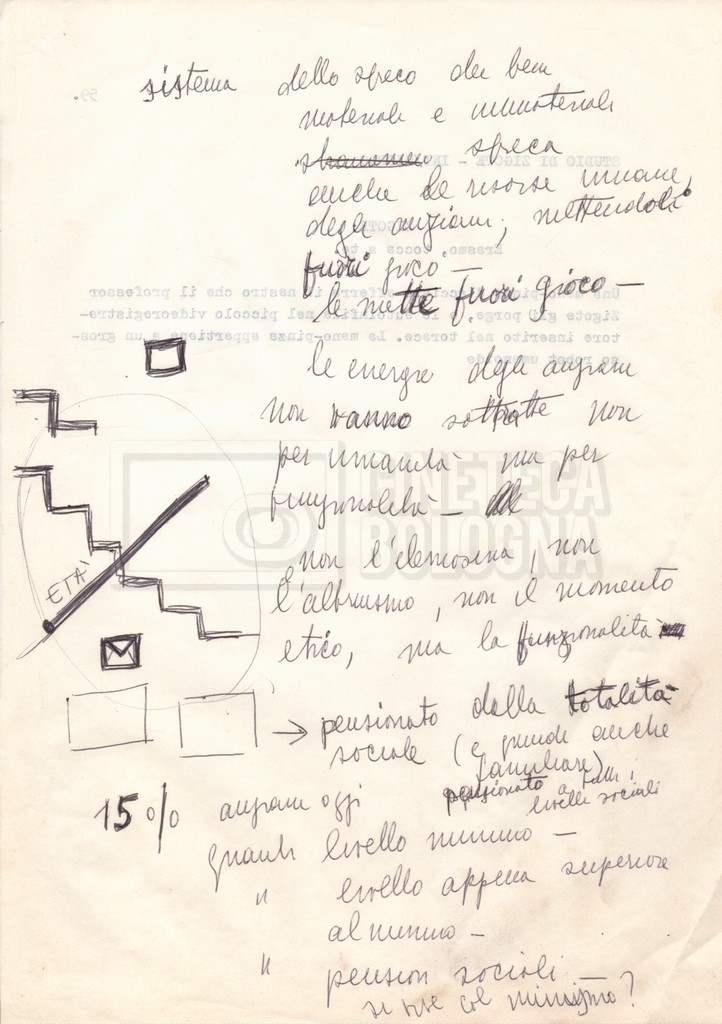 sistema dello spreco dei beni
materiali e immateriali
spreca
anche le risorse umane,
degli anziani, mettendoli
fuori gioco —
le mette fuori gioco —
le energie degli anziani
non vanno sottratte non
per umanità ma per
funzionalità —
non l'elemosina, non
l'altruismo, non il momento
etico, ma la funzionalità
ETÀ
→ pensionato dalla totalità
sociale (e quindi anche
familiare)
pensionato a tutti i
livelli sociali
15% anziani oggi
quanti livello minimo —
" livello appena superiore
al minimo —
" pension sociali —
si vive col minimo?
CINETECA
BOLOGNA
59.
STUDIO DI ZIGOTE - IN
Erasmo, tocca a te.
il nastro che il professor
Zigote gli porge, nel piccolo videoregistra-
tore inserito nel torace. La mano-pinza appartiene a un gros-
so robot